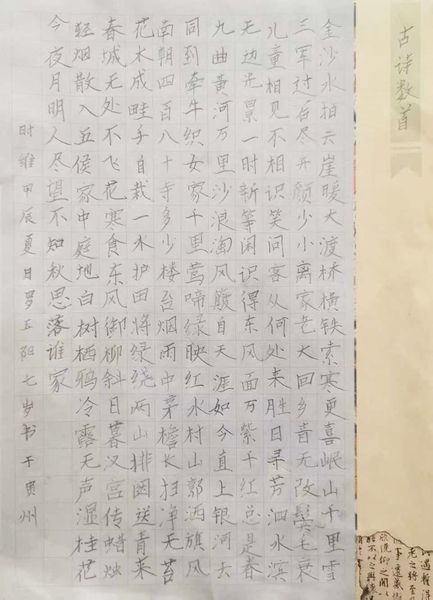 古诗数首
金沙水拍云崖暖大渡桥横铁索寒更喜岷山千里雪
三军过后尽开颜少小离家老大回乡音无改鬓毛衰
儿童相见不相识笑问客从何处来胜日寻芳泗水滨
无边光景一时新等闲识得东风面万紫千红总是春
九曲黄河万里沙浪淘风簸自天涯如今直上银河去
同到牵牛织女家千里莺啼绿映红水村山郭酒旗风
南朝四百八十寺多少楼台烟雨中茅檐长扫净无苔
花木成畦手自栽一水护田将绿绕两山排闼送青来
春城无处不飞花寒食东风御柳斜日暮汉宫传蜡烛
轻烟散入五侯家中庭地白树栖鸦冷露无声湿桂花
今夜月明人尽望不知秋思落谁家
时维甲辰夏日罗五阳七岁书于贵州
遇暫得
老之將至
俛仰之間以
不以之興